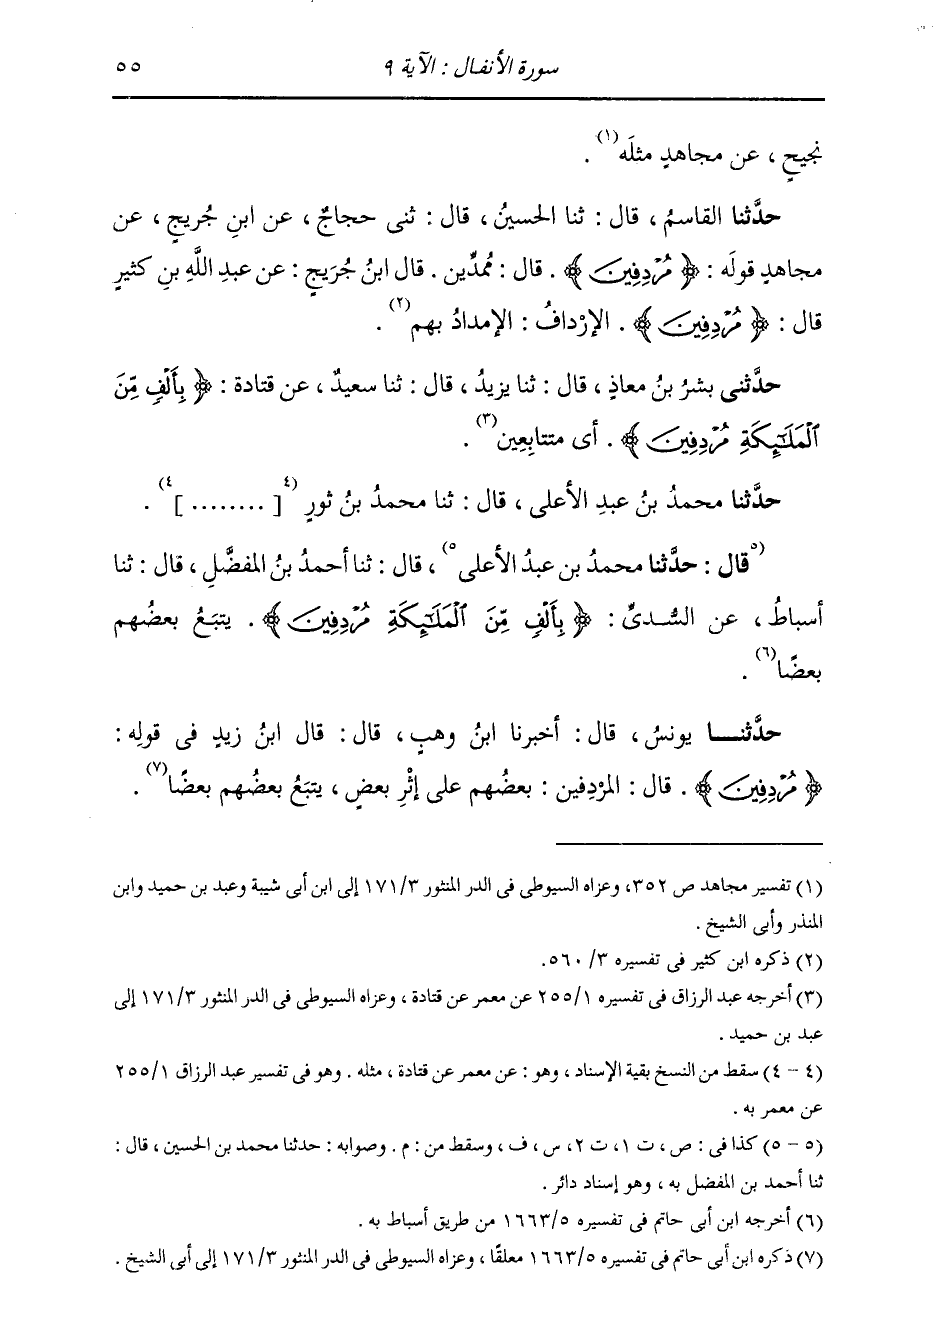 سورة الأنفال : الآية ٩
٥٥
نجيحٍ ، عن مجاهدٍ مثلَه(١) .
حدَّثنا القاسمُ ، قال : ثنا الحسينُ ، قال : ثنى حجاجٌ ، عن ابنِ جُريجٍ ، عن
مجاهدٍ قولَه : ﴿ مُرْدِفِينَ ﴾ . قال : مُمِدِّين . قال ابنُ جُرَيجٍ : عن عبدِ اللَّهِ بنِ كثيرٍ
قال : ﴿ مُرْدِفِينَ ﴾ . الإرْدافُ : الإمدادُ بهم(٢) .
حدَّثنى بشرُ بنُ معاذٍ ، قال : ثنا يزيدُ ، قال : ثنا سعيدٌ ، عن قتادة : ﴿ بِأَلْفٍ مِّنَ
ٱلْمَلَـٰٓئِكَةِ مُرْدِفِينَ ﴾ . أى متتابِعين(٣) .
حدَّثنا محمدُ بنُ عبدِ الأعلى ، قال : ثنا محمدُ بنُ ثورٍ (٤[ ........ ]٤) .
(٥قال : حدَّثنا محمدُ بن عبدُ الأعلى٥) ، قال : ثنا أحمدُ بنُ المفضَّلِ ، قال : ثنا
أسباطُ ، عن السُّدىِّ : ﴿ بِأَلْفٍ مِّنَ ٱلْمَلَـٰٓئِكَةِ مُرْدِفِينَ ﴾ . يتبَعُ بعضُهم
بعضًا(٦) .
حدَّثنــا يونسُ ، قال : أخبرنا ابنُ وهبٍ ، قال : قال ابنُ زيدٍ فى قولِه :
﴿ مُرْدِفِينَ ﴾ . قال : المرْدِفين : بعضُهم على إثْرِ بعضٍ ، يتبَعُ بعضُهم بعضًا(٧) .
(١) تفسير مجاهد ص ٣٥٢، وعزاه السيوطى فى الدر المنثور ١٧١/٣ إلى ابن أبى شيبة وعبد بن حميد وابن
المنذر وأبى الشيخ .
(٢) ذكره ابن كثير فى تفسيره ٣/ ٥٦٠.
(٣) أخرجه عبد الرزاق فى تفسيره ٢٥٥/١ عن معمر عن قتادة ، وعزاه السيوطى فى الدر المنثور ١٧١/٣ إلى
عبد بن حميد .
(٤ - ٤) سقط من النسخ بقية الإسناد ، وهو : عن معمر عن قتادة ، مثله . وهو فى تفسير عبد الرزاق ٢٥٥/١
عن معمر به .
(٥ - ٥) كذا فى : ص ، ت ١، ت ٢، س ، ف ، وسقط من : م . وصوابه : حدثنا محمد بن الحسين ، قال :
ثنا أحمد بن المفضل به ، وهو إسناد دائر .
(٦) أخرجه ابن أبى حاتم فى تفسيره ١٦٦٣/٥ من طريق أسباط به .
(٧) ذكره ابن أبى حاتم فى تفسيره ١٦٦٣/٥ معلقًا ، وعزاه السيوطى فى الدر المنثور ١٧١/٣ إلى أبى الشيخ .